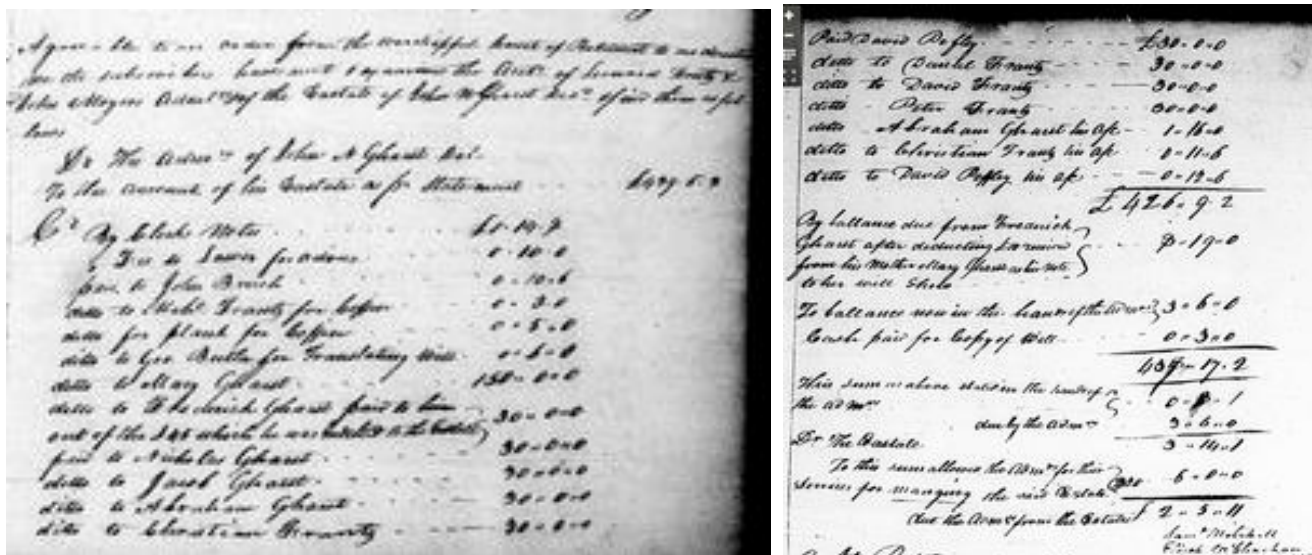 Agreeable to an order from the worshipful Court of Botetourt to us directed
we the subscribers have met & examined the Acts. of Leonard &
John Moyers Admrs. of the Eastate of John N Gharst Decd. find them as fol
lows
Dr The Admrs. of John N Gharst Decd.
To the amount of his Eastate as pr Statement £439.5.3
Cr By Clerk Notes £1.14.
Fee to Lawer for advice 0.10.0
paid to John Brough 0-10.6
ditto to Frantz for Coffin 0-3.0
ditto for plank for Coffin 0-5.0
ditto to Geo Butler for Translating Will 0-6-0
ditto to Mary Gharst 150-0-0
ditto to Frederick Gharst paid to him
out of the £45 which he was to the Eastate 30-0-0
paid to Nicholas Gharst 30-0-0
ditto to Jacob Gharst 30-0-0
ditto to Abraham Gharst 30-0-0
ditto to Christian Frantz 30-0-0
Paid David Peffley £30-0-0
ditto to Daniel Frantz 30-0-0
ditto to David Frantz 30-0-0
ditto Peter Frantz 30-0-0
ditto Abraham Gharst his Ap. 1-16-0
ditto to Christian Frantz his ap 0-11-6
ditto to David Peffley his ap 0-12-6
£426-9-2
By ballance due from Fredrick
Gharst after deducting
from his Mother Mary Gharst as his Note 8-19-0
to her will Shew
To ballance now in the hands of the Admrs. 3-6-0
Cash paid for Copy of Will 0-3-0
17-2
This sum as above stated in the hands of
the Admrs. 0-8-1
due by the Admrs 3-6-0
Dr The Eastate 3-14-1
To this sum allowed the Admrs for their
services for manging the said Eastate 6-0-0
due the Admrs. from the Estate £2-5-11
Saml. Mitchell